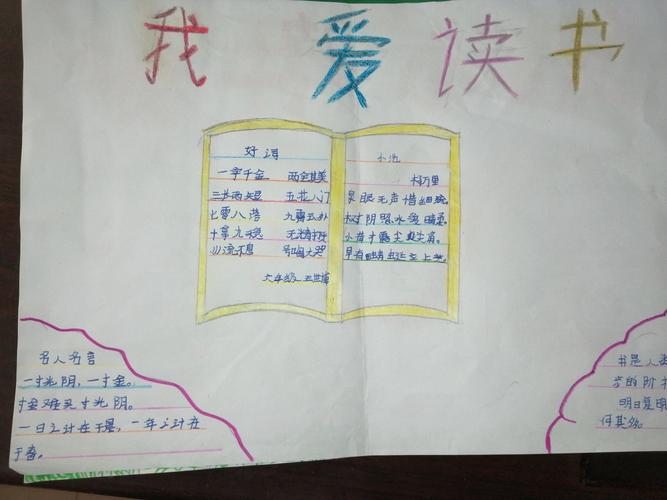 我爱读书
好词
一字千金 两全其美
三长两短 五花八门
七零八落 九霄云外
十拿九稳 无精打采
川流不息 号啕大哭
六年级
小池
杨万里
泉眼无声惜细流。
树阴照水爱晴柔。
小荷才露尖尖角。
早有蜻蜓立上头。
名人名言
一寸光阴，一寸金。
寸金难买寸光阴。
一日之计在于晨，一年之计在
于春。
书是人类
步的阶梯
明日复明
何其多。